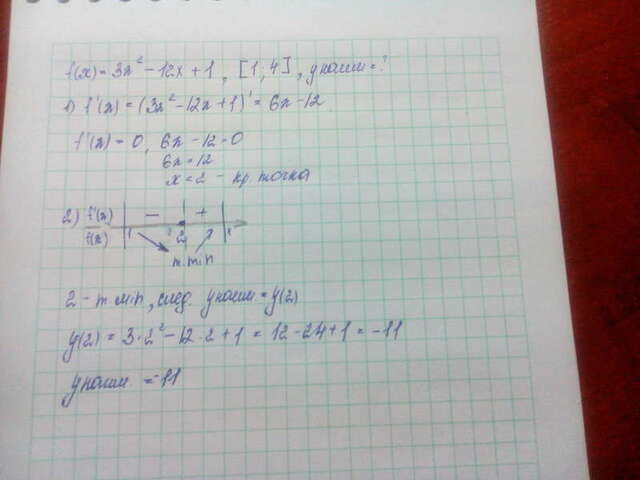 f(x) = 3x² - 12x + 1 , [1, 4] , y наим = ?
1) f'(x) = (3x² - 12x + 1)' = 6x - 12
f'(x) = 0, 6x - 12 = 0
6x = 12
x = 2 - кр точка
2) f'(x) - +
f(x) 1 2
т. min
2 - т min, след. y наим = y(2)
y(2) = 3·2² - 12·2 + 1 = 12 - 24 + 1 = -11
y наим = -11